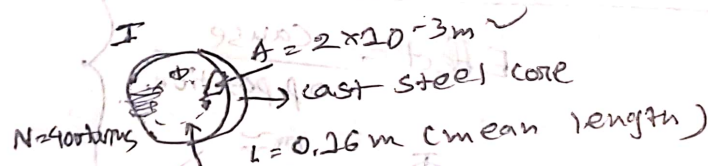 I
A = 2×10-3m
Φ
cast steel core
N=400turns
L = 0.16m (mean length)